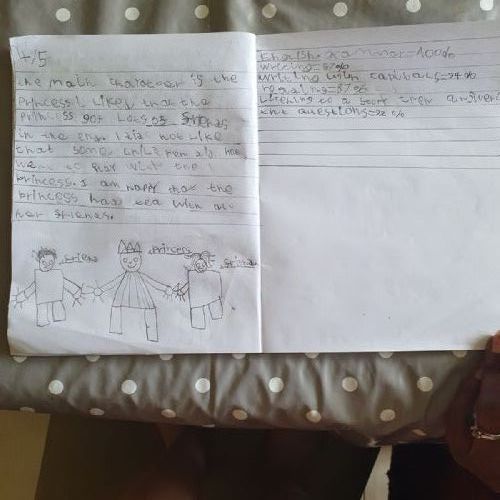 the main charatcer is the
Princess I liked that the
Princess got Lots of friends
in the end. I did not like
that some children did not
to play with the
Princess. I am happy that the
princess has tea with all
her friends.
friend
Princess
friend
english. grammar=100%
writing=
writing with capitals=
reading=
Listening to a story then
the questions=